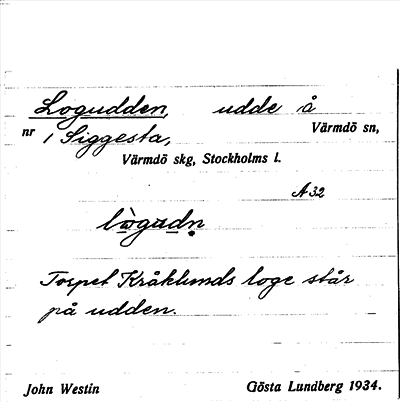 Logudden, udde å
nr 1 Siggesta, Värmdö sn,
Värmdö skg, Stockholms l.
A 32
lògudn̥
Torpet Kråklunds loge står
på udden.
John Westin Gösta Lundberg 1934.